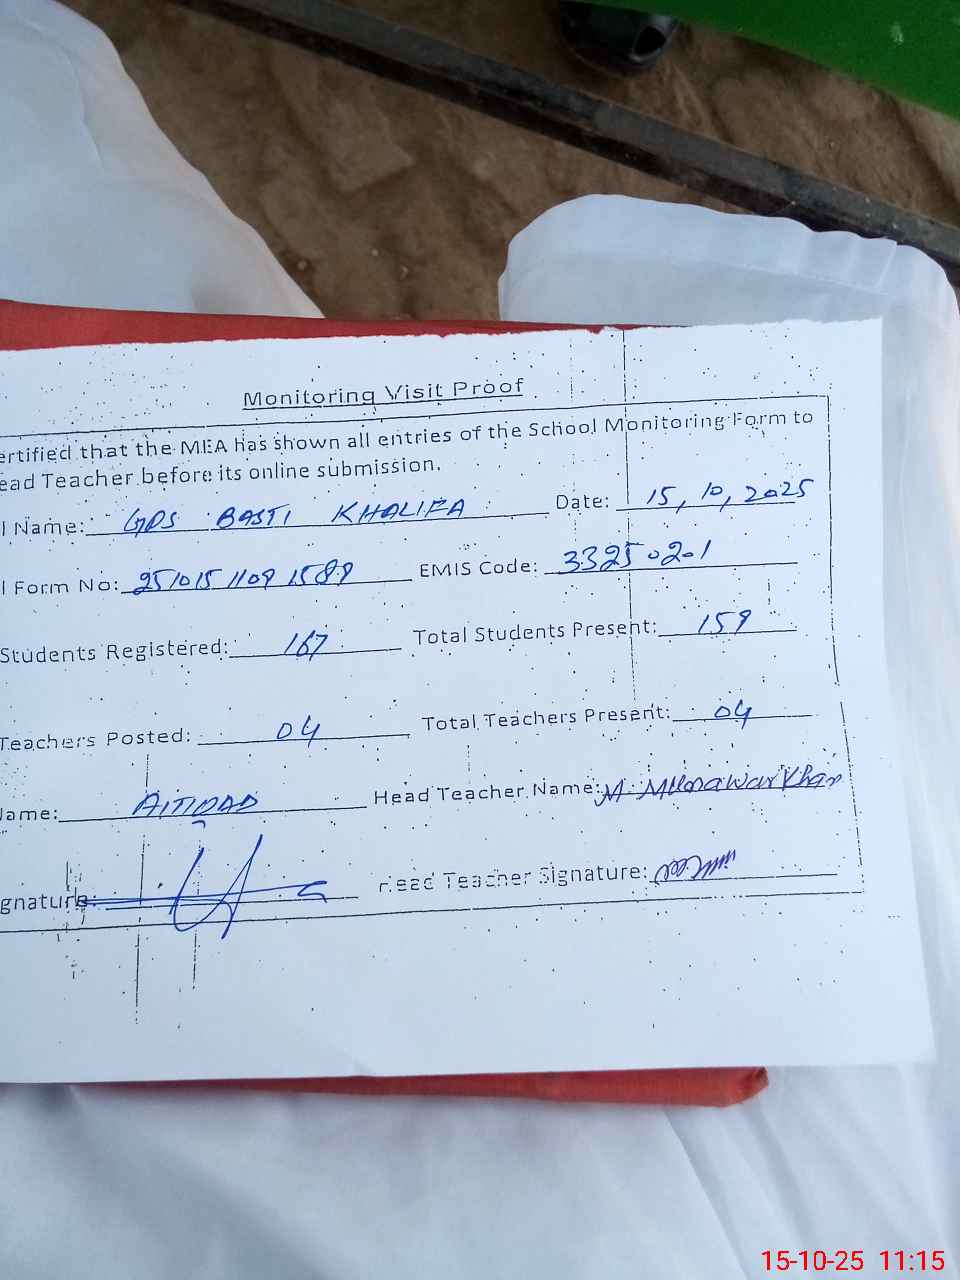 Monitoring Visit Proof
ertified that the MEA has shown all entries of the School Monitoring Form to
ead Teacher before its online submission.
l Name: GPS BASTI KHALIFA Date: 15, 10, 2025
l Form No: 251015 1109 1589 EMIS Code: 33250201
Students Registered: 167 Total Students Present: 159
Teachers Posted: 04 Total Teachers Present: 04
lame: AITIDAD Head Teacher Name: M. Munawar Khan
gnature: Head Teacher Signature:
15-10-25 11:15